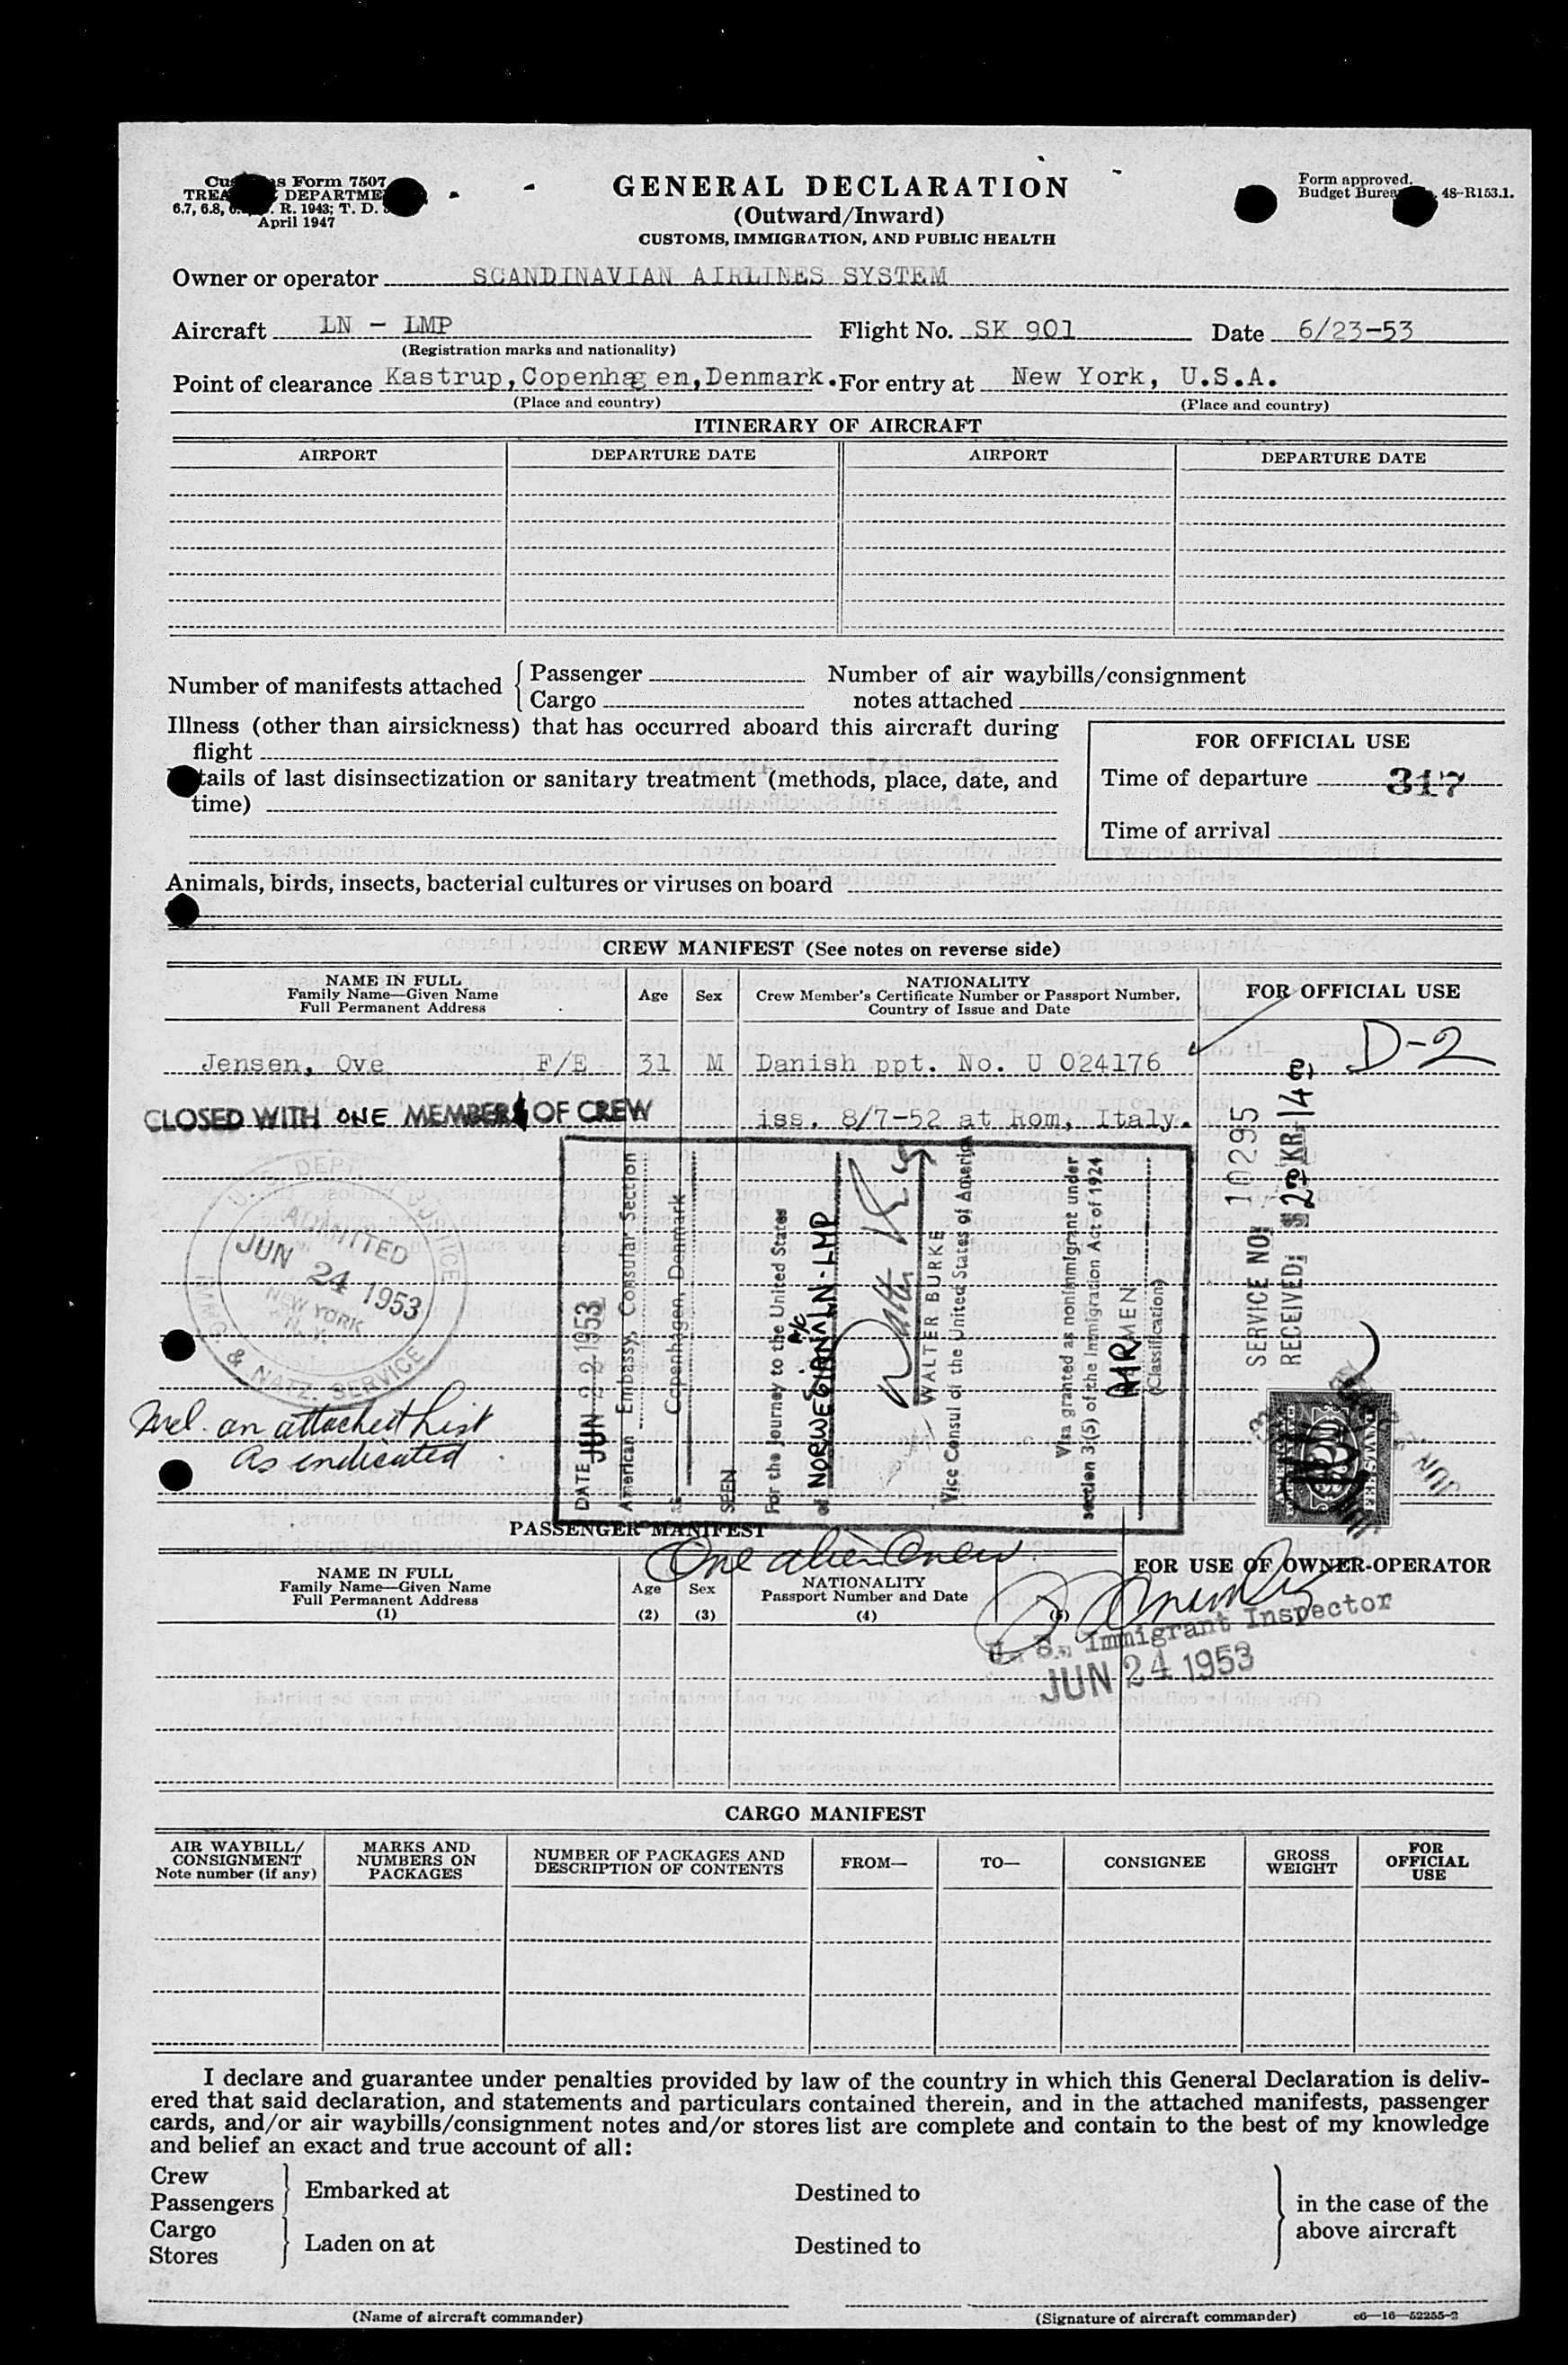 Form 7507
April 1947
GENERAL DECLARATION
(Outward/Inward)
CUSTOMS, IMMIGRATION, AND PUBLIC HEALTH
Form approved.
48-R153.1.
Owner or operator SCANDINAVIAN AIRLINES SYSTEM
Aircraft LN - LMP Flight No. SK 901 Date 6/23-53
(Registration marks and nationality)
Point of clearance Kastrup,Copenhagen,Denmark. For entry at New York, U.S.A.
(Place and country) (Place and country)
ITINERARY OF AIRCRAFT
AIRPORT DEPARTURE DATE AIRPORT DEPARTURE DATE
Number of manifests attached { Passenger
Cargo
Number of air waybills/consignment
notes attached
Illness (other than airsickness) that has occurred aboard this aircraft during
flight
tails of last disinsectization or sanitary treatment (methods, place, date, and
time)
FOR OFFICIAL USE
Time of departure 317
Time of arrival
Animals, birds, insects, bacterial cultures or viruses on board
CREW MANIFEST (See notes on reverse side)
NAME IN FULL
Family Name—Given Name
Full Permanent Address
Age
Sex
NATIONALITY
Crew Member's Certificate Number or Passport Number,
Country of Issue and Date
FOR OFFICIAL USE
Jensen, Ove F/E 31 M Danish ppt. No. U 024176 D-2
CLOSED WITH ONE MEMBER OF CREW iss. 8/7-52 at Rom, Italy.
U.S. DEPT. JUSTICE
ADMITTED
JUN 24 1953
NEW YORK
N. Y.
IMMG. & NATZ. SERVICE
DATE JUN 22 1953
American Embassy, Consular Section
Copenhagen, Denmark
SEEN
For the journey to the United States
of NORWEGIAN A/C LN-LMP
WALTER BURKE
Vice Consul of the United States of America
Visa granted as nonimmigrant under
section 3(5) of the Immigration Act of 1924
AIRMEN
(Classification)
SERVICE NO: 10295
RECEIVED:
on attached list
as indicated
PASSENGER MANIFEST
One alien crew
NAME IN FULL
Family Name—Given Name
Full Permanent Address
(1)
Age
(2)
Sex
(3)
NATIONALITY
Passport Number and Date
(4)
(5)
FOR USE OF OWNER-OPERATOR
U. S. Immigrant Inspector
JUN 24 1953
CARGO MANIFEST
AIR WAYBILL/
CONSIGNMENT
Note number (if any)
MARKS AND
NUMBERS ON
PACKAGES
NUMBER OF PACKAGES AND
DESCRIPTION OF CONTENTS
FROM—
TO—
CONSIGNEE
GROSS
WEIGHT
FOR
OFFICIAL
USE
I declare and guarantee under penalties provided by law of the country in which this General Declaration is deliv-
ered that said declaration, and statements and particulars contained therein, and in the attached manifests, passenger
cards, and/or air waybills/consignment notes and/or stores list are complete and contain to the best of my knowledge
and belief an exact and true account of all:
Crew
Passengers } Embarked at Destined to
Cargo
Stores } Laden on at Destined to
} in the case of the
above aircraft
(Name of aircraft commander) (Signature of aircraft commander) c6—16—52255-2